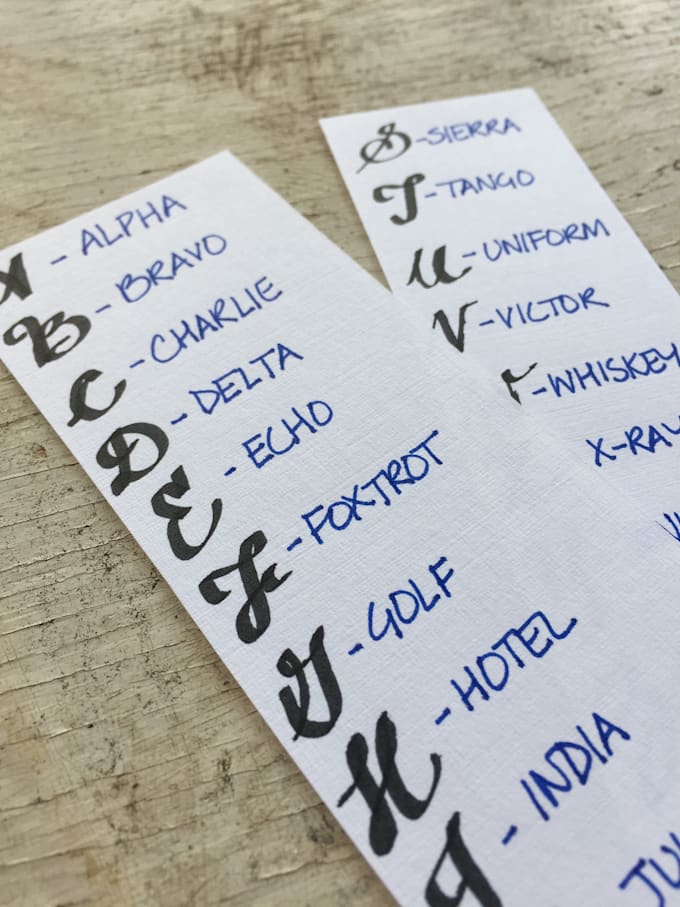 A - ALPHA
B - BRAVO
C - CHARLIE
D - DELTA
E - ECHO
F - FOXTROT
G - GOLF
H - HOTEL
I - INDIA
S - SIERRA
T - TANGO
U - UNIFORM
V - VICTOR
- WHISKEY
X-RAY